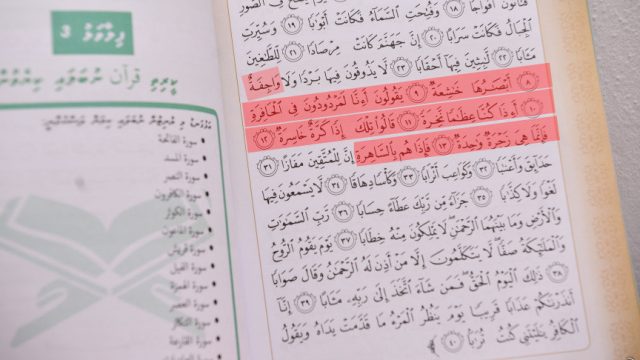 ١٨ وَفُتِحَتِ السَّمَآءُ فَكَانَتْ أَبْوَٰبًا ١٩ وَسُيِّرَتِ
الْجِبَالُ فَكَانَتْ سَرَابًا ٢٠ إِنَّ جَهَنَّمَ كَانَتْ مِرْصَادًا ٢١ لِّلطَّٰغِينَ
مَـَٔابًا ٢٢ لَّٰبِثِينَ فِيهَآ أَحْقَابًا ٢٣ لَّا يَذُوقُونَ فِيهَا بَرْدًا وَلَا وَاجِفَةٌ
٨ أَبْصَٰرُهَا خَٰشِعَةٌ ٩ يَقُولُونَ أَءِنَّا لَمَرْدُودُونَ فِى الْحَافِرَةِ
١٠ أَءِذَا كُنَّا عِظَٰمًا نَّخِرَةً ١١ قَالُوا۟ تِلْكَ إِذًا كَرَّةٌ خَاسِرَةٌ ١٢
فَإِنَّمَا هِىَ زَجْرَةٌ وَٰحِدَةٌ ١٣ فَإِذَا هُم بِالسَّاهِرَةِ إِنَّ لِلْمُتَّقِينَ مَفَازًا ٣١
حَدَآئِقَ وَأَعْنَٰبًا ٣٢ وَكَوَاعِبَ أَتْرَابًا ٣٣ وَكَأْسًا دِهَاقًا ٣٤ لَّا يَسْمَعُونَ فِيهَا
لَغْوًا وَلَا كِذَّٰبًا ٣٥ جَزَآءً مِّن رَّبِّكَ عَطَآءً حِسَابًا ٣٦ رَّبِّ السَّمَٰوَٰتِ
وَالْأَرْضِ وَمَا بَيْنَهُمَا الرَّحْمَٰنِ لَا يَمْلِكُونَ مِنْهُ خِطَابًا ٣٧ يَوْمَ يَقُومُ الرُّوحُ
وَالْمَلَٰٓئِكَةُ صَفًّا لَّا يَتَكَلَّمُونَ إِلَّا مَنْ أَذِنَ لَهُ الرَّحْمَٰنُ وَقَالَ صَوَابًا
٣٨ ذَٰلِكَ الْيَوْمُ الْحَقُّ فَمَن شَآءَ اتَّخَذَ إِلَىٰ رَبِّهِۦ مَـَٔابًا ٣٩ إِنَّآ
أَنذَرْنَٰكُمْ عَذَابًا قَرِيبًا يَوْمَ يَنظُرُ الْمَرْءُ مَا قَدَّمَتْ يَدَاهُ وَيَقُولُ
الْكَافِرُ يَٰلَيْتَنِى كُنتُ تُرَٰبًا ٤٠
ފިލާވަޅު 3
ކީރިތި قرآن ނުބަލައި ކިޔެވުން
سورة الفاتحة
سورة المسد
سورة النصر
سورة الكافرون
سورة الكوثر
سورة الماعون
سورة قريش
سورة الفيل
سورة الهمزة
سورة العصر
سورة التكاثر
سورة القارعة